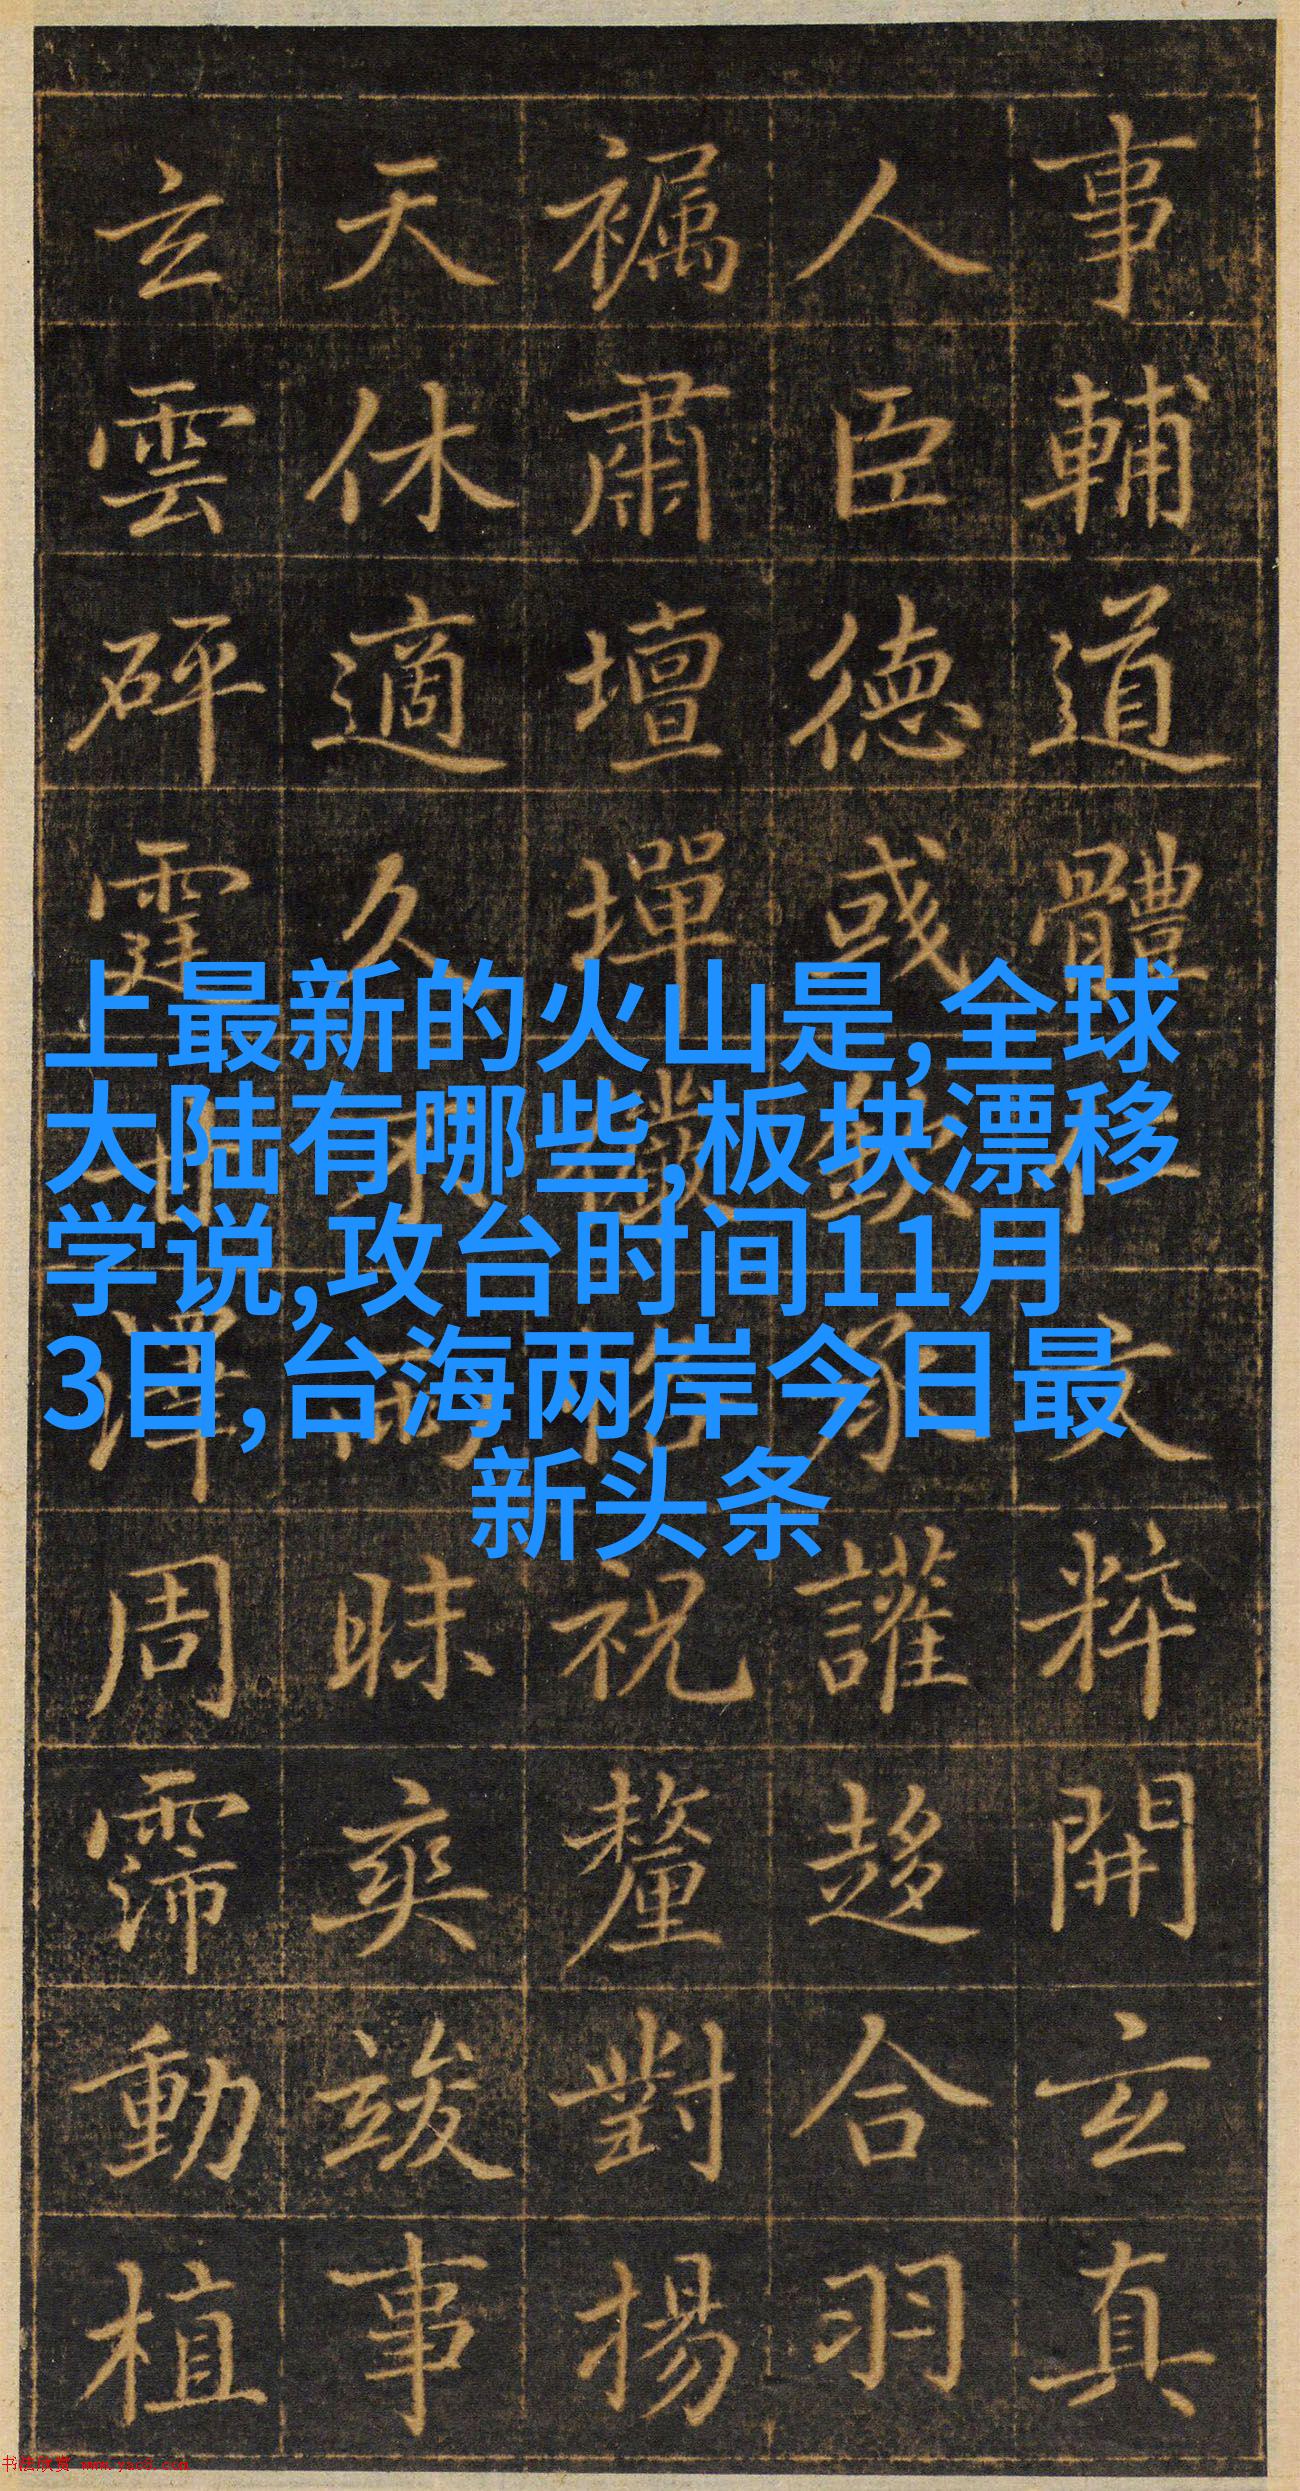 事輔道體仁文粹開玄真
人臣德或讙趍合羽
肅壇墠祝釐對揚
天休適久不雨昧爽竣事
玄雲砰霆甘澤周霈動植
上最新的火山是,全球
大陆有哪些,板块漂移
学说,攻台时间11月
3日,台海两岸今日最
新头条
书法欣赏 www.yac8.com